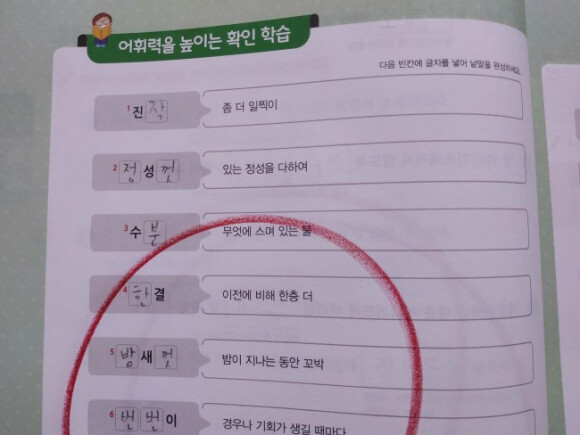 어휘력을 높이는 확인 학습
다음 빈칸에 글자를 넣어 낱말을 완성하세요.
1 진작 좀 더 일찍이
2 정성껏 있는 정성을 다하여
3 수분 무엇에 스며 있는 물
4 한결 이전에 비해 한층 더
5 밤새껏 밤이 지나는 동안 꼬박
6 번번이 경우나 기회가 생길 때마다